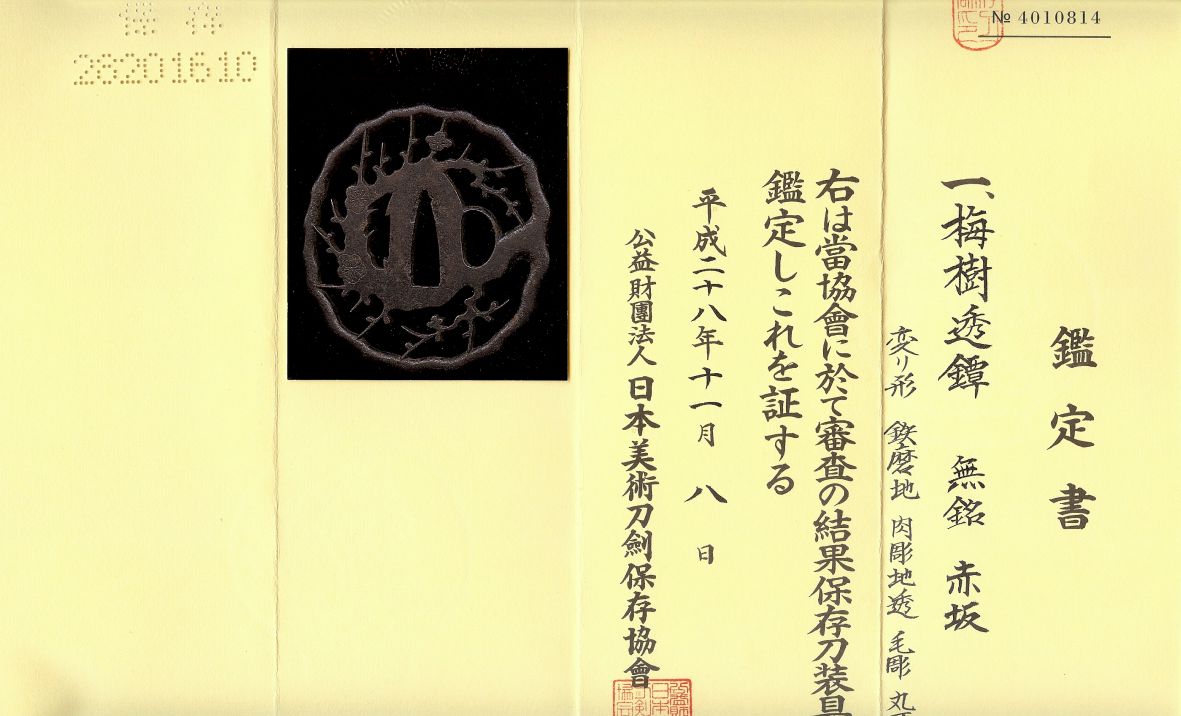 № 4010814
鑑定書
一、梅樹透鐔 無銘 赤坂
変り形 鉄磨地 肉彫地透 毛彫 丸
右は當協會に於て審査の結果保存刀装具
鑑定しこれを証する
平成二十八年十一月 八 日
公益財團法人 日本美術刀劍保存協會
保存
28201610